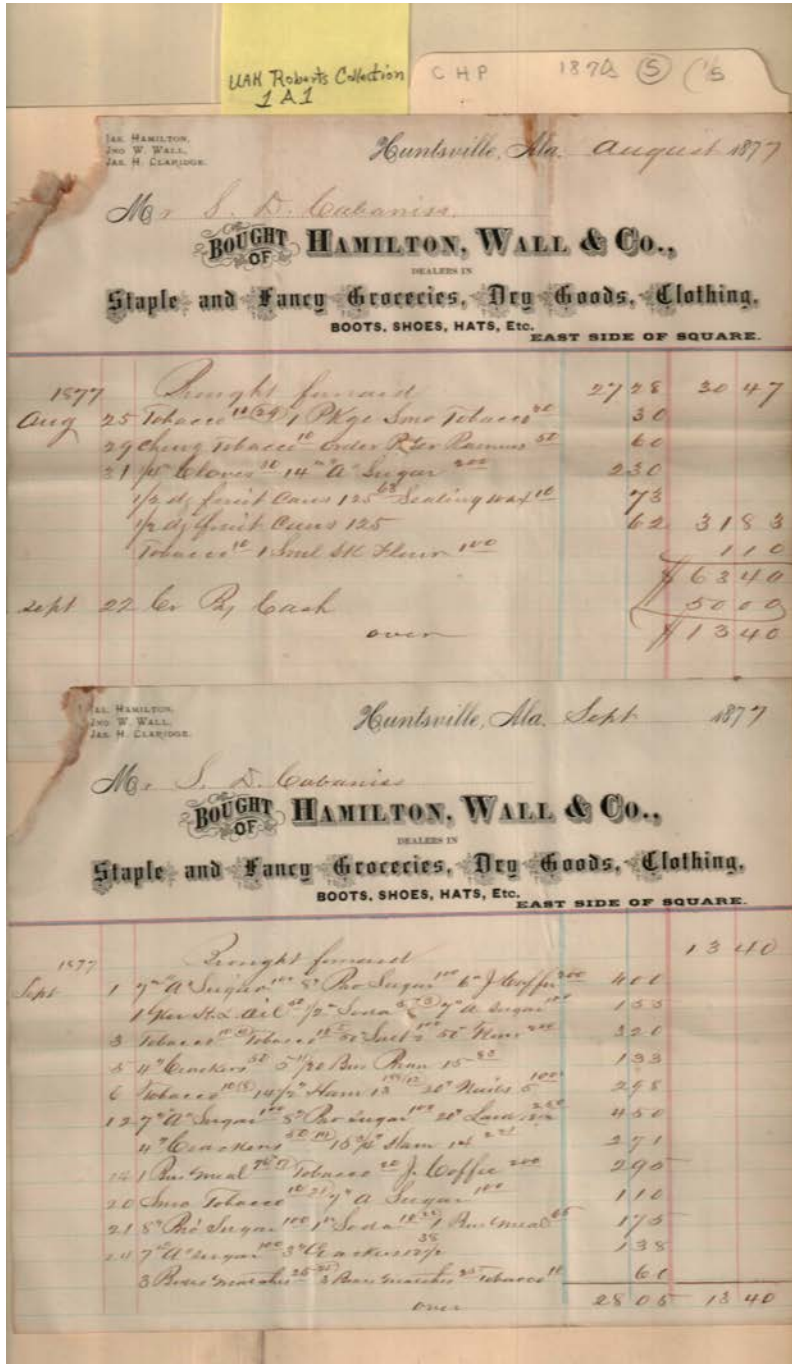 UAH Roberts Collection
1 A 1
C H P 187
JAS. HAMILTON,
JNO W. WALL,
JAS. H. CLARIDGE.
Huntsville, Ala. August 1877
Mr S. D. Cabaniss
BOUGHT OF HAMILTON, WALL & CO.,
DEALERS IN
Staple and Fancy Groceries, Dry Goods, Clothing,
BOOTS, SHOES, HATS, Etc.
EAST SIDE OF SQUARE.
1877 Brought forward 27 28 30 47
Aug 25 Tobacco 10 1 Pkge Smo Tobacco 20 30
29 Tobacco 10 order 50 60
31 Cloves 14 "A" Sugar 200 2 30
1/2 dz fruit Cans 125 63 Sealing wax 10 73
1/2 dz fruit Cans 125 62 31 83
Tobacco 10 1 Sk Flour 100 1 10
$ 63 40
Sept 22 Cr By Cash 50 00
over $ 13 40
JAS. HAMILTON,
JNO W. WALL,
JAS. H. CLARIDGE.
Huntsville, Ala. Sept 1877
Mr S. D. Cabaniss
BOUGHT OF HAMILTON, WALL & CO.,
DEALERS IN
Staple and Fancy Groceries, Dry Goods, Clothing,
BOOTS, SHOES, HATS, Etc.
EAST SIDE OF SQUARE.
1877 Brought forward 13 40
Sept 1 7 "A" Sugar 100 8 Bro Sugar 100 6 J. Coffee 200 4 00
Oil 50 1/2 Soda 7 A Sugar 100 1 55
3 Tobacco Tobacco 50 Salt 50 Flour 200 3 20
5 4 Crackers 50 Bran 1 33
6 Tobacco 14 1/2 Ham 20 Nails 5 100 2 98
12 7 "A" Sugar 100 8 Bro Sugar 100 20 Lard 4 50
4 Crackers 50 Ham 14 2 71
14 1 Bus Meal Tobacco 20 J. Coffee 200 2 95
20 Smo Tobacco 10 7 A Sugar 100 1 10
21 8 Bro Sugar 100 1 Soda 10 1 Bus Meal 65 1 75
24 7 "A" Sugar 100 3 Crackers 38 1 38
3 matches 25 3 matches 25 Tobacco 10 60
over 28 05 13 40